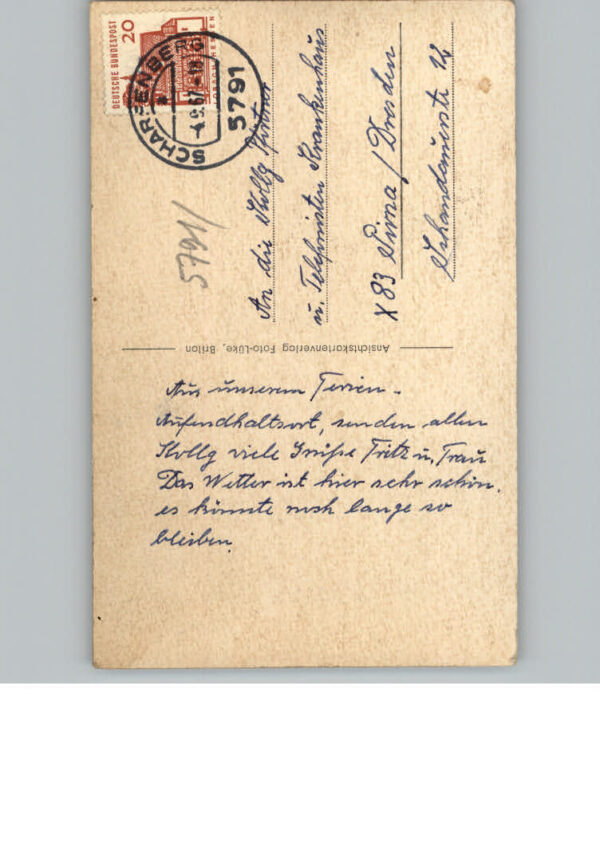 Aus unserem Ferien-
Aufendhaltsort, senden allen
Kollg viele Grüße Fritz u. Frau
Das Wetter ist hier sehr schön.
es könnte noch lange so
bleiben.
Ansichtskartenverlag Foto-Lüke, Brilon
DEUTSCHE BUNDESPOST
20
SCHARFENBERG
5791
5791/
An die Kollg Pförtner
u. Telefonisten Krankenhaus
X 83 Pirna / Dresden
Schandauerstr 12